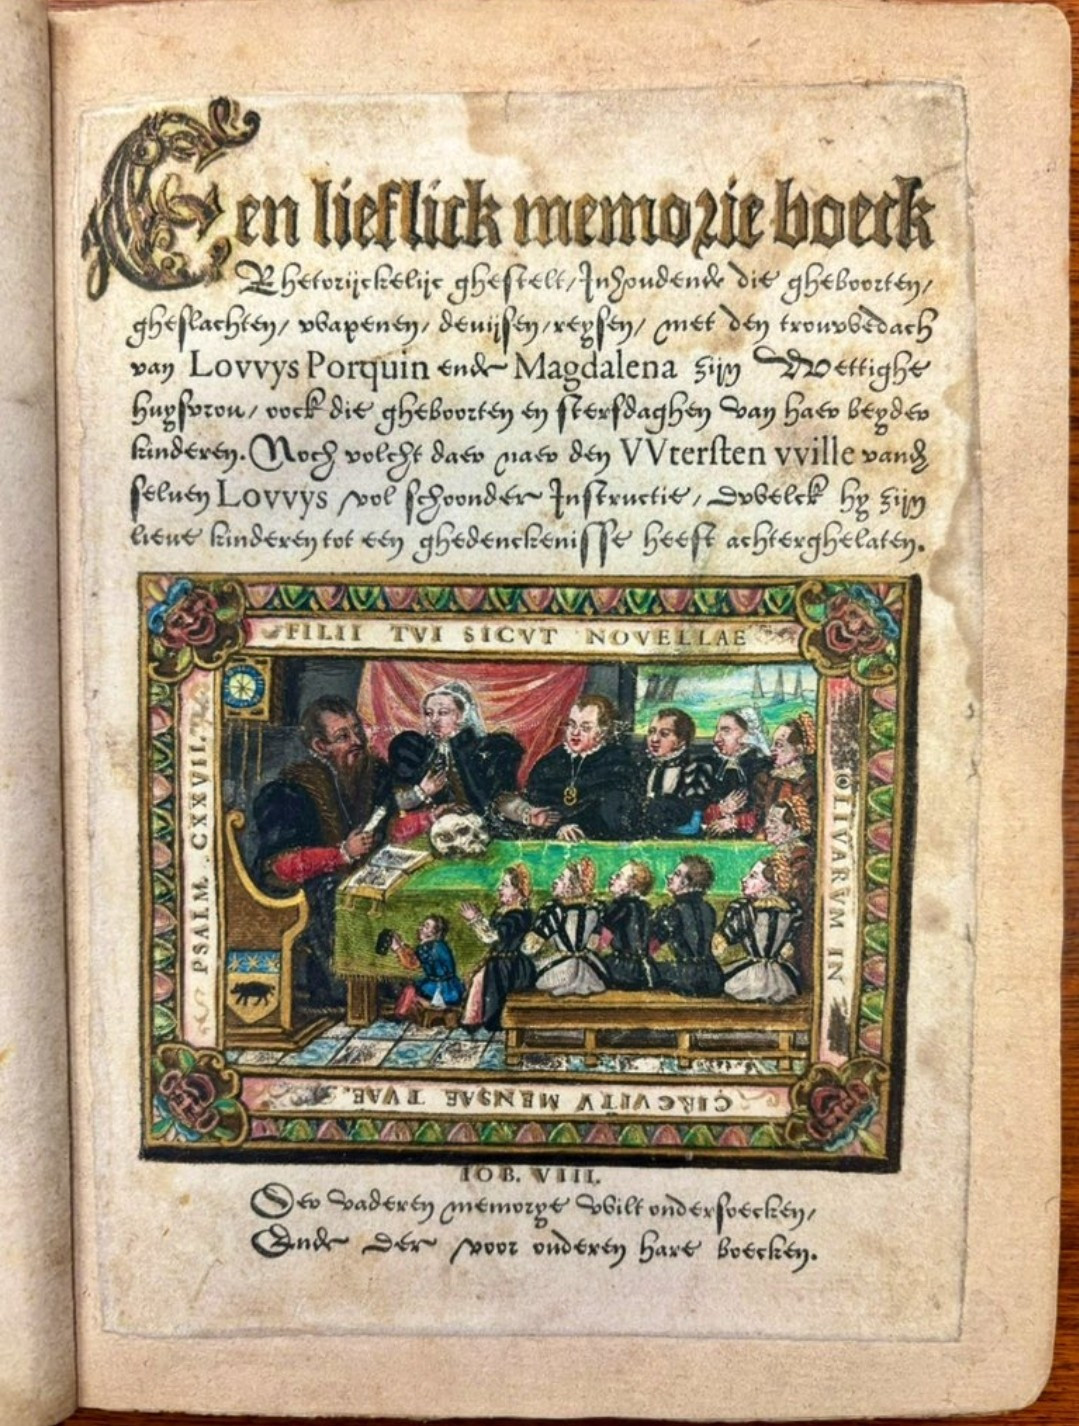 Een lieflick memorie boeck
Rhetorijckelijc ghestelt/ Inhoudende die gheboorten/
gheslachten/ vvapenen/ deuijsen/ reysen/ met den trouvvedach
van Lovvys Porquin ende Magdalena zijn VVettighe
huysvrou/ oock die gheboorten en sterfdaghen van haer beyder
kinderen. Noch volcht daer naer den VVtersten vville vande
seluen Lovvys vol schoonder Instructie/ Dvvelck hy zijn
lieue kinderen tot een ghedenckenisse heeft achterghelaten.
FILII TVI SICVT NOVELLAE
OLIVARVM IN
CIRCVITV MENSAE TVAE.
PSALM. CXXVII.
IOB. VIII.
Der vaderen memorye vvilt ondersoecken/
Ende der voor ouderen hare boecken.